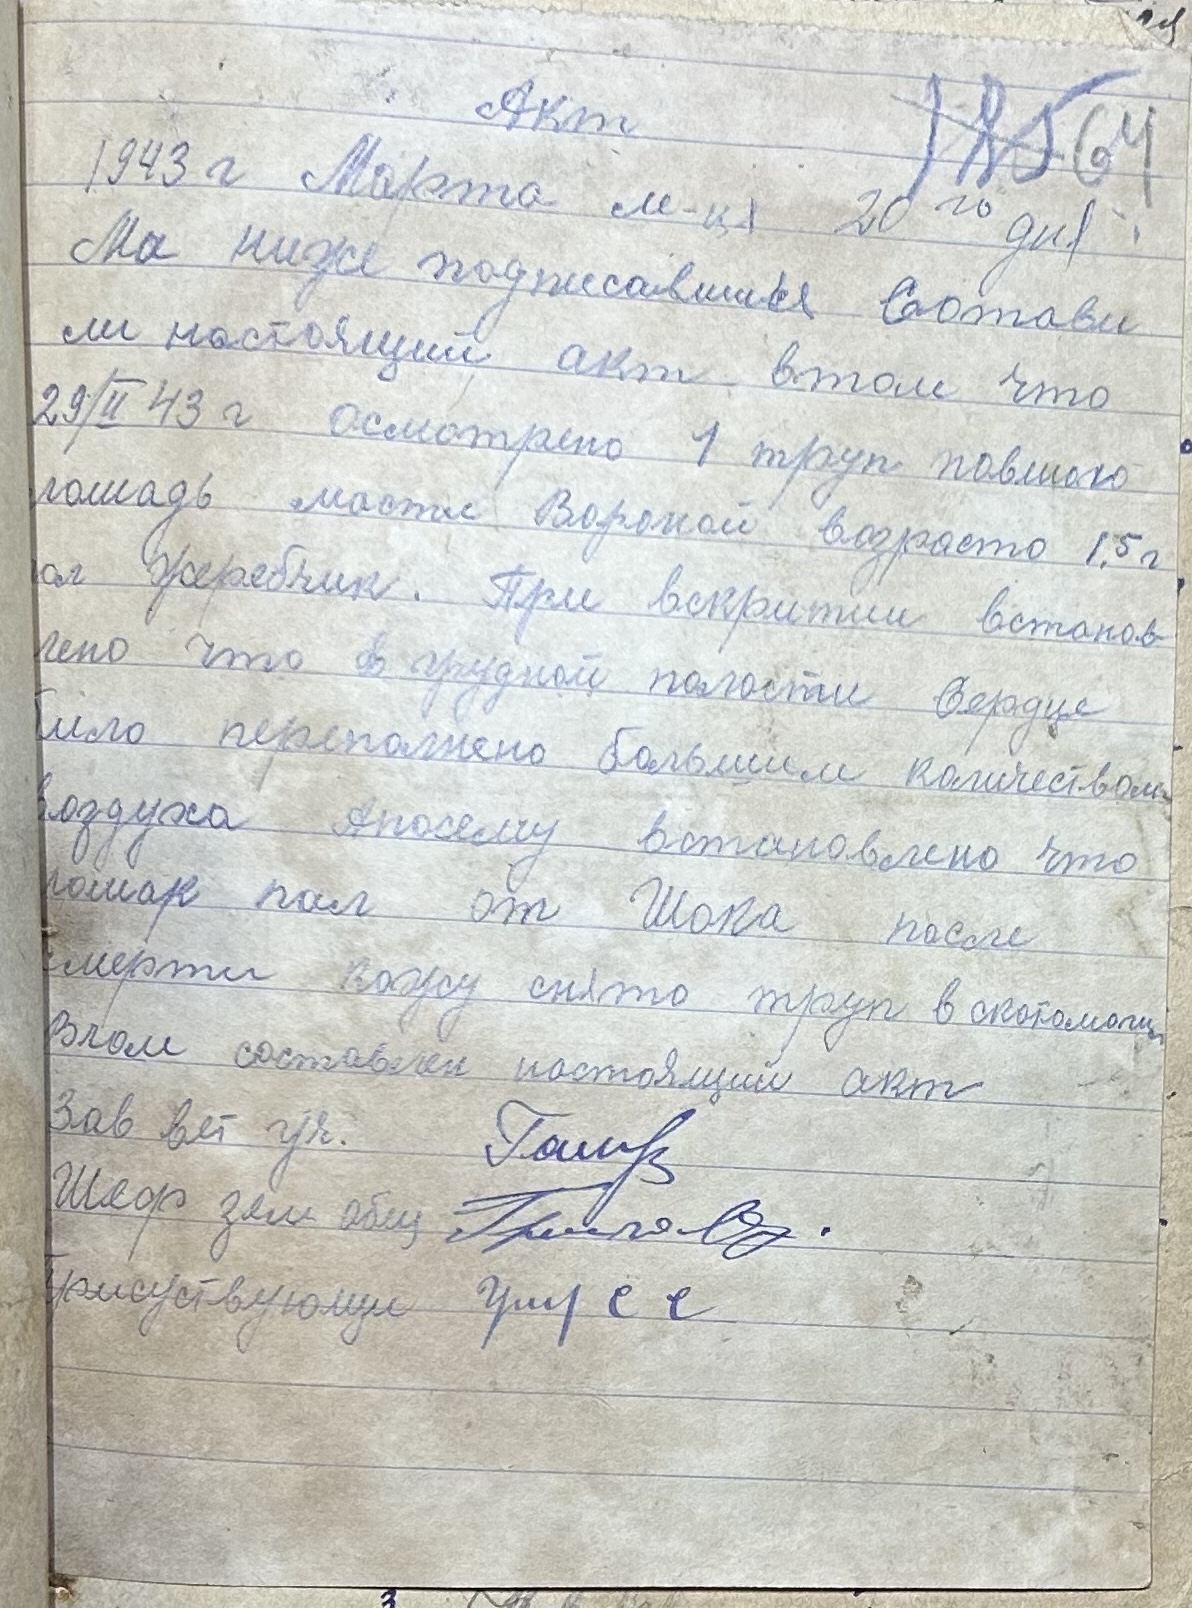 Акт
185 64
1943 г Марта м-ця 20 го дня
Ма ниже подписавшися Состави
ли настоящий акт втом что
29/II 43 г осмотрено 1 труп павшою
лошадь масти Вороной возрасто 1,5 г
пол Жеребчик. При вскритии встанов
лено что в грудной полости Сердце
било переполнено большим количеством
воздуха Апосему встановлено что
лошак пал от Шока после
смерти кожу снято труп в скотомогил
Вчом составлен настоящий акт
Зав вет уч.
Шеф зем общ
Присуствующи